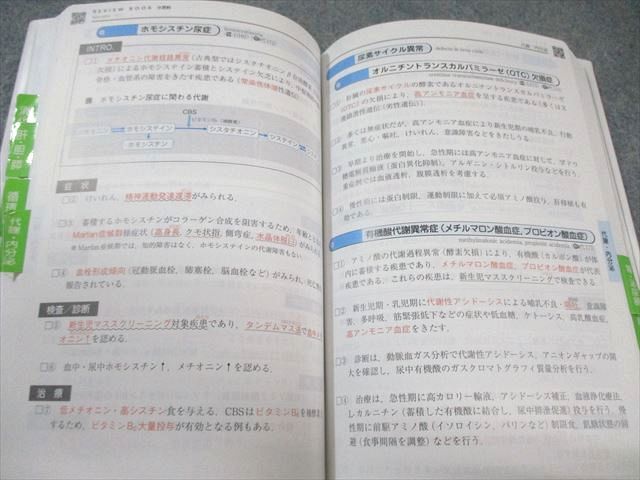 REVIEW BOOK
ホモシスチン尿症
INTRO
□① メチオニン代謝経路異常（古典型ではシスタチオニン
欠損）によるホモシステイン蓄積とシステイン欠乏により
骨格・血管系の障害をきたす疾患である（常染色体
図 ホモシスチン尿症に関わる代謝
CBS
ビタミンB6（補酵素）
ホモシステイン
シスタチオニン
システイン
ホモシスチン
症 状
□② けいれん，精神運動発達遅滞がみられる．
□③ 蓄積するホモシスチンがコラーゲン合成を阻害するため，
Marfan症候群様症状（高身長，クモ状指，側弯症，水晶体脱臼）がみられる
＊Marfan症候群では，知的障害はなく，ホモシステインの代謝障害もない．
□④ 血栓形成傾向（冠動脈血栓，肺塞栓，脳血栓など）がみられ，
報告されている．
検査／診断
□⑤ 新生児マススクリーニング対象疾患であり，タンデムマス法で
オニン↑を認める．
□⑥ 血中・尿中ホモシスチン↑，メチオニン↑を認める．
治 療
□⑦ 低メチオニン・高シスチン食を与える．CBSはビタミンB6を補酵素
するため，ビタミンB6大量投与が有効となる例もある．
肝・胆・膵
循環
代謝・内分泌
尿素サイクル異常
defects in urea cycle
オルニチントランスカルバミラーゼ（OTC）欠損症
□① 肝臓の尿素サイクルの酵素であるオルニチントランスカルバミラーゼ
（OTC）の欠損により，高アンモニア血症を呈する疾患である（多くはX
連鎖潜性遺伝）（男性遺伝）．
□② 多くは無症状だが，高アンモニア血症により新生児期の哺乳不良，行動
異常，悪心・嘔吐，けいれん，意識障害などをきたしうる．
□③ 早期より治療を開始し，急性期には高アンモニア血症に対して，ブドウ
糖電解質輸液（蛋白異化抑制），アルギニン・シトルリン投与などを行う．
重症例では血液透析，腹膜透析を考慮する．
□④ 慢性期には蛋白制限，運動制限に加えて必須アミノ酸投与，肝移植も有
効である．
有機酸代謝異常症（メチルマロン酸血症，プロピオン酸血症）
methylmalonic acidemia, propionic acidemia
□① アミノ酸の代謝過程異常（酵素欠損）により，有機酸（カルボン酸）が体
内に蓄積する疾患であり，メチルマロン酸血症，プロピオン酸血症が代表
的疾患である．これらの疾患は，新生児マススクリーニングで検査できる．
□② 新生児期・乳児期に代謝性アシドーシスによる哺乳不良・嘔吐，意識障
害，多呼吸，筋緊張低下などの症状や低血糖，ケトーシス，高乳酸血症，
高アンモニア血症をきたす．
□③ 診断は，動脈血ガス分析で代謝性アシドーシス，アニオンギャップの開
大を確認し，尿中有機酸のガスクロマトグラフィ質量分析を行う．
□④ 治療は，急性期に高カロリー輸液，アシドーシス補正，血液浄化療法，
Lカルニチン（蓄積した有機酸に結合し，尿中排泄促進）投与を行う．慢
性期に前駆アミノ酸（イソロイシン，バリンなど）制限食，飢餓状態の回
避（食事間隔を調整）などを行う．
代謝・内分泌